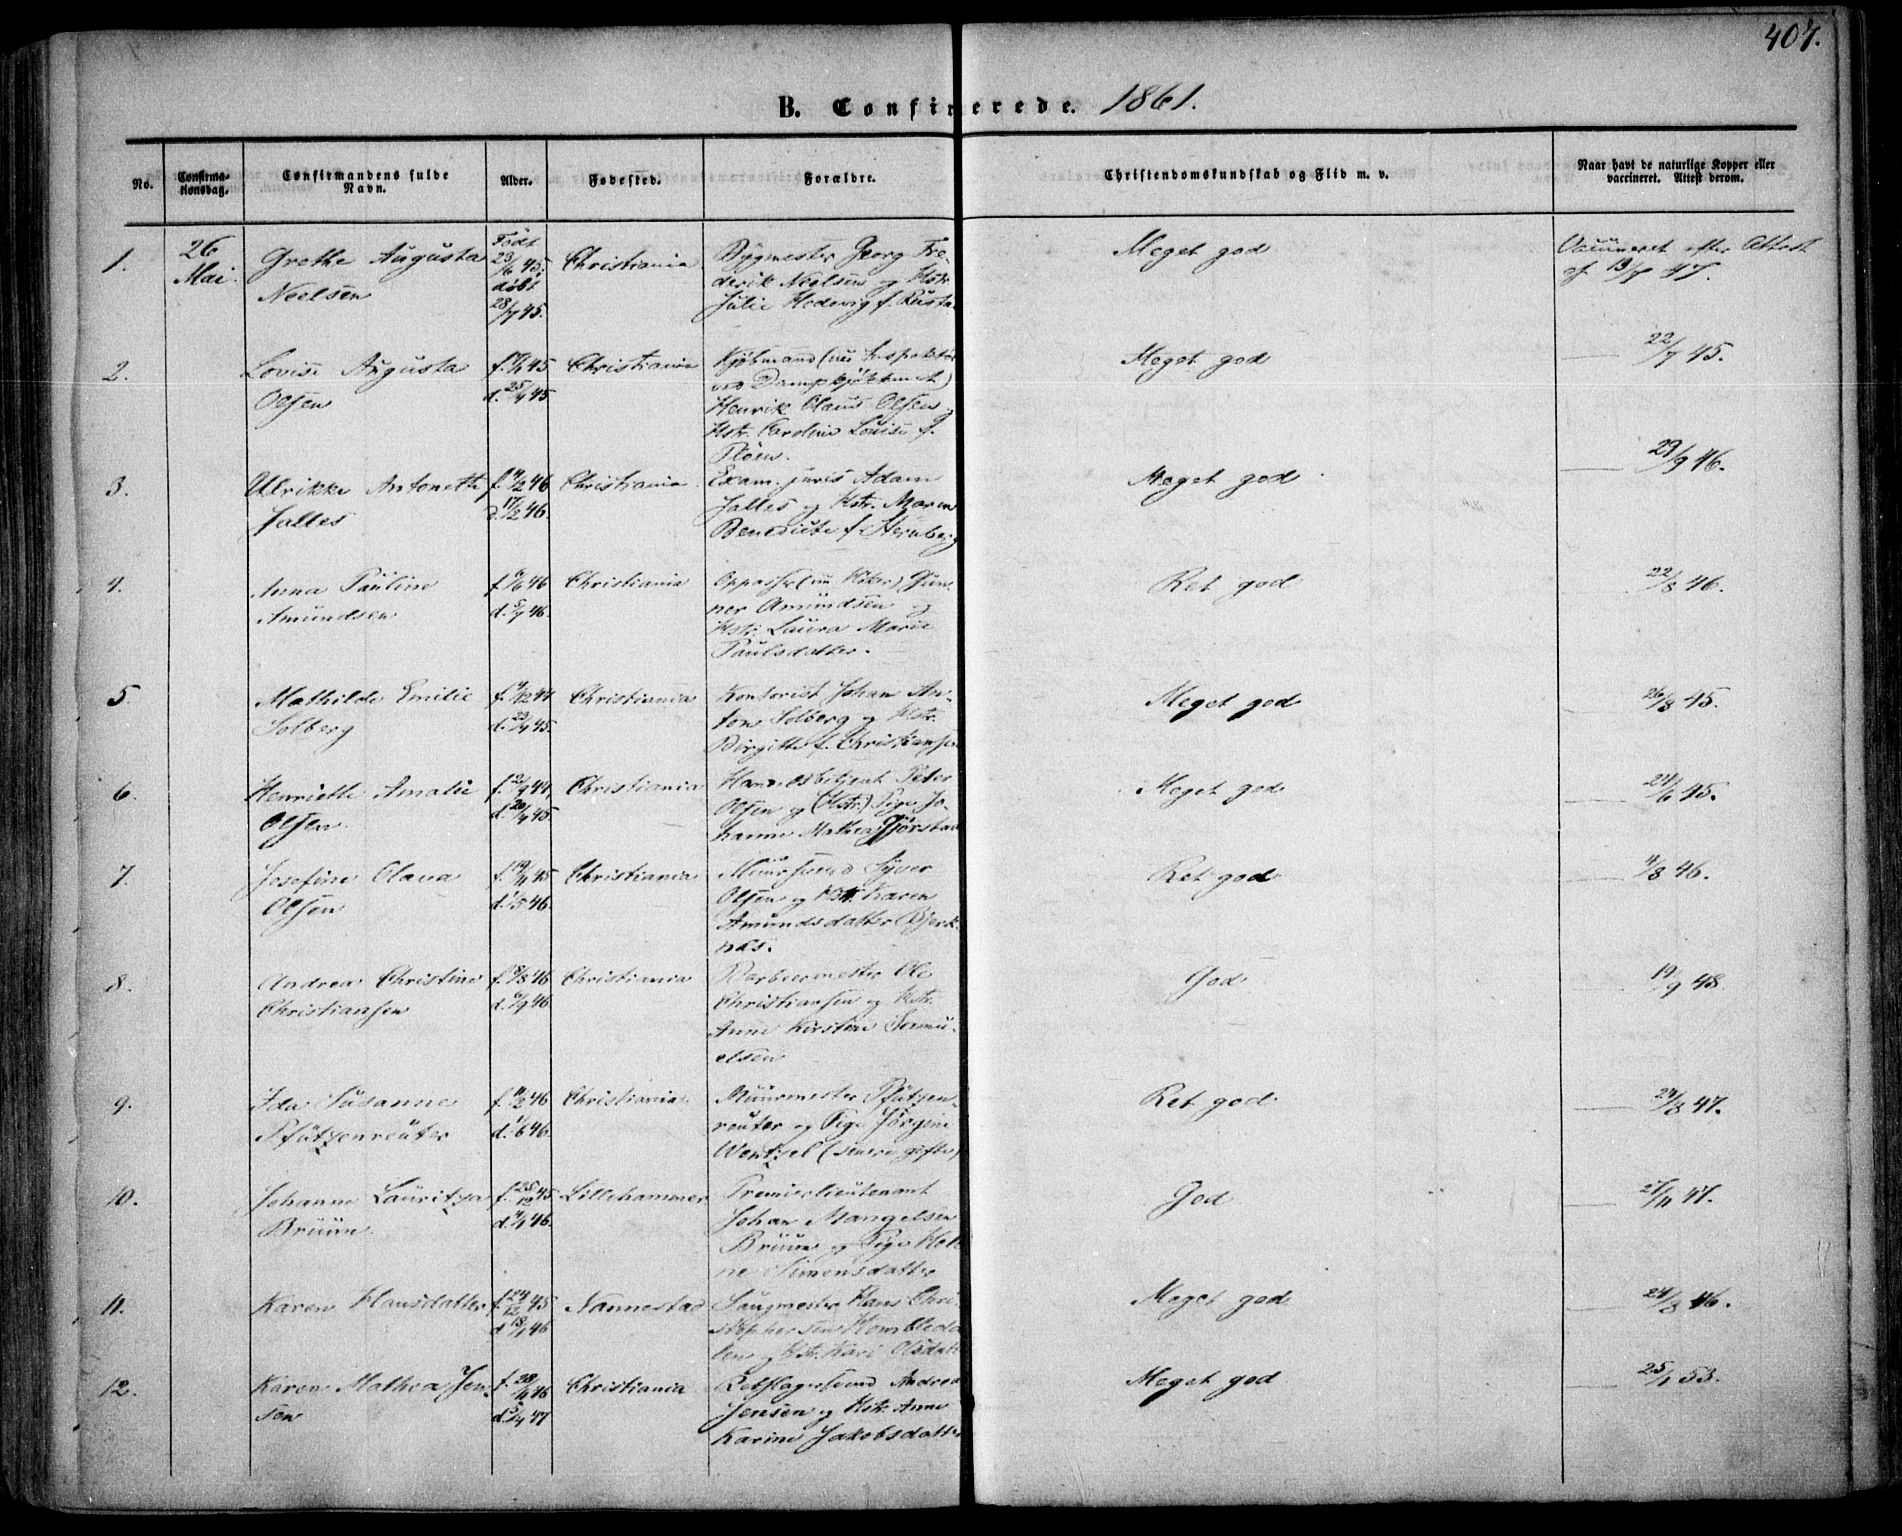 407.
B. Confirmerede. 1861.
No.
Confirma-
tionsdag.
Confirmandens fulde
Navn.
Alder.
Fødested.
Forældre.
Christendomskundskab og Flid m. v.
Naar havt de naturlige Kopper eller
vaccineret. Attest derom.
1. 26 Grethe Augusta Født Christiania Bygmester Georg Fre- Meget god Vaccineret efter Attest
Mai. Neelsen 23/6 45. derik Neelsen og Hstr. af 13/7 47.
døbt Julie Hedevig f.
28/7 45.
2. Lovise Augusta 45 Christiania Kjøbmand (nu Inspektør Meget god 22/7 45.
Olsen d. 25/4 45 ved
Henrik Claus Olsen
Hstr. Caroline Louise f.
3. Ulrikke Antonette f. 4/2 46 Christiania Exam. juris Adam Meget god 29/9 46.
Jalles d. 17/2 46. Jalles og Hstr. Maren
Benedicte f.
4. Anna Pauline f. 6/6 46 Christiania Oppasser (nu Gun- Ret god 22/8 46.
Amundsen d. 5/7 46. ner Amundsen og
Hstr. Laura Marie
Paulsdatter.
5. Mathilde Emilie f. 4/12 44 Christiania Kontorist Johan An- Meget god 26/8 45.
Solberg d. 23/4 45. ton Solberg og Hstr.
Birgitte f.
6. Henriette Amalie 44 Christiania Handelsbetjent Peter Meget god 24/6 45.
Olsen d. 20/4 45 Olsen og (Hstr.) Pige Jo-
hanne Mathea
7. Josefine Olava f. 19/11 45 Christiania Muursvend Syver Ret god 4/8 46.
Olsen d. 1/5 46. Olsen og Hstr. Karen
Amundsdatter Bjerk-
næs.
8. Andrea Christine f. 8/8 46 Christiania Barbeermester Ole God 19/9 48.
Christiansen d. 6/9 46. Christiansen og Hstr.
Anne Kirstine Samu-
elsen
9. Ida Susanne f. 11/2 46 Christiania. Muurmester Pfützen- Ret god. 24/8 47.
Pfützenreuter d. 1/6 46. reuter og Pige Jørgine
Wentzel (senere gifte)
10. Johanne Lauritza f. 25/12 45 Lillehammer Premierlieutenant God 27/11 47.
Bruun. d. 4/1 46. Johan Mangelsen
Bruun og Pige
ne Simensdatter
11. Karen Hansdatter f. 24/12 45 Nannestad Saugmester Hans Chri- Meget god 24/8 46.
d. 18/1 46 stophersen
og Hstr. Kari Olsdatt
12. Karen Mathea Jen- f. 28/11 46 Christiania Rebslagersvend Andreas Meget god 25/1 53.
sen d. 5/4 47 Jensen og Hstr. Anne
Karine Jakobsdatter